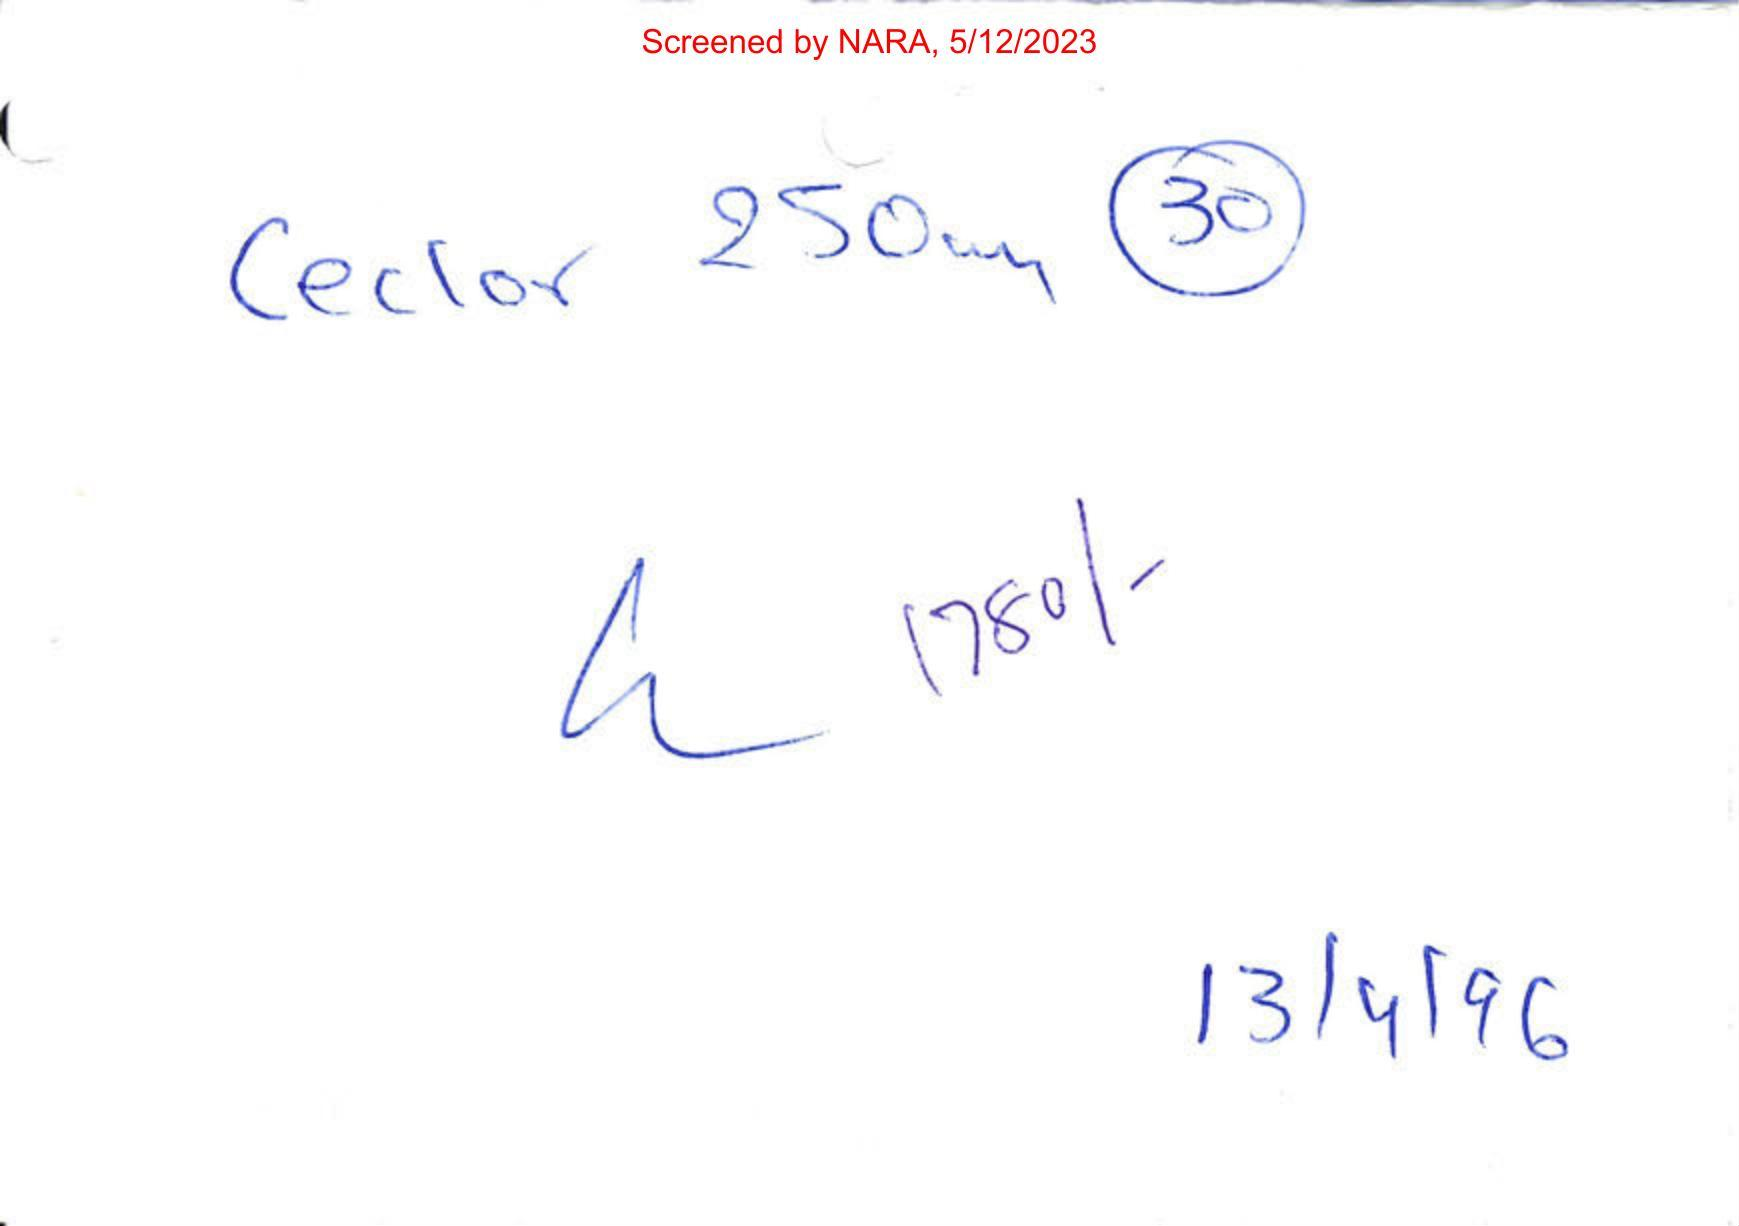 Screened by NARA, 5/12/2023
Ceclor 250mg 30
1780/-
13/4/96